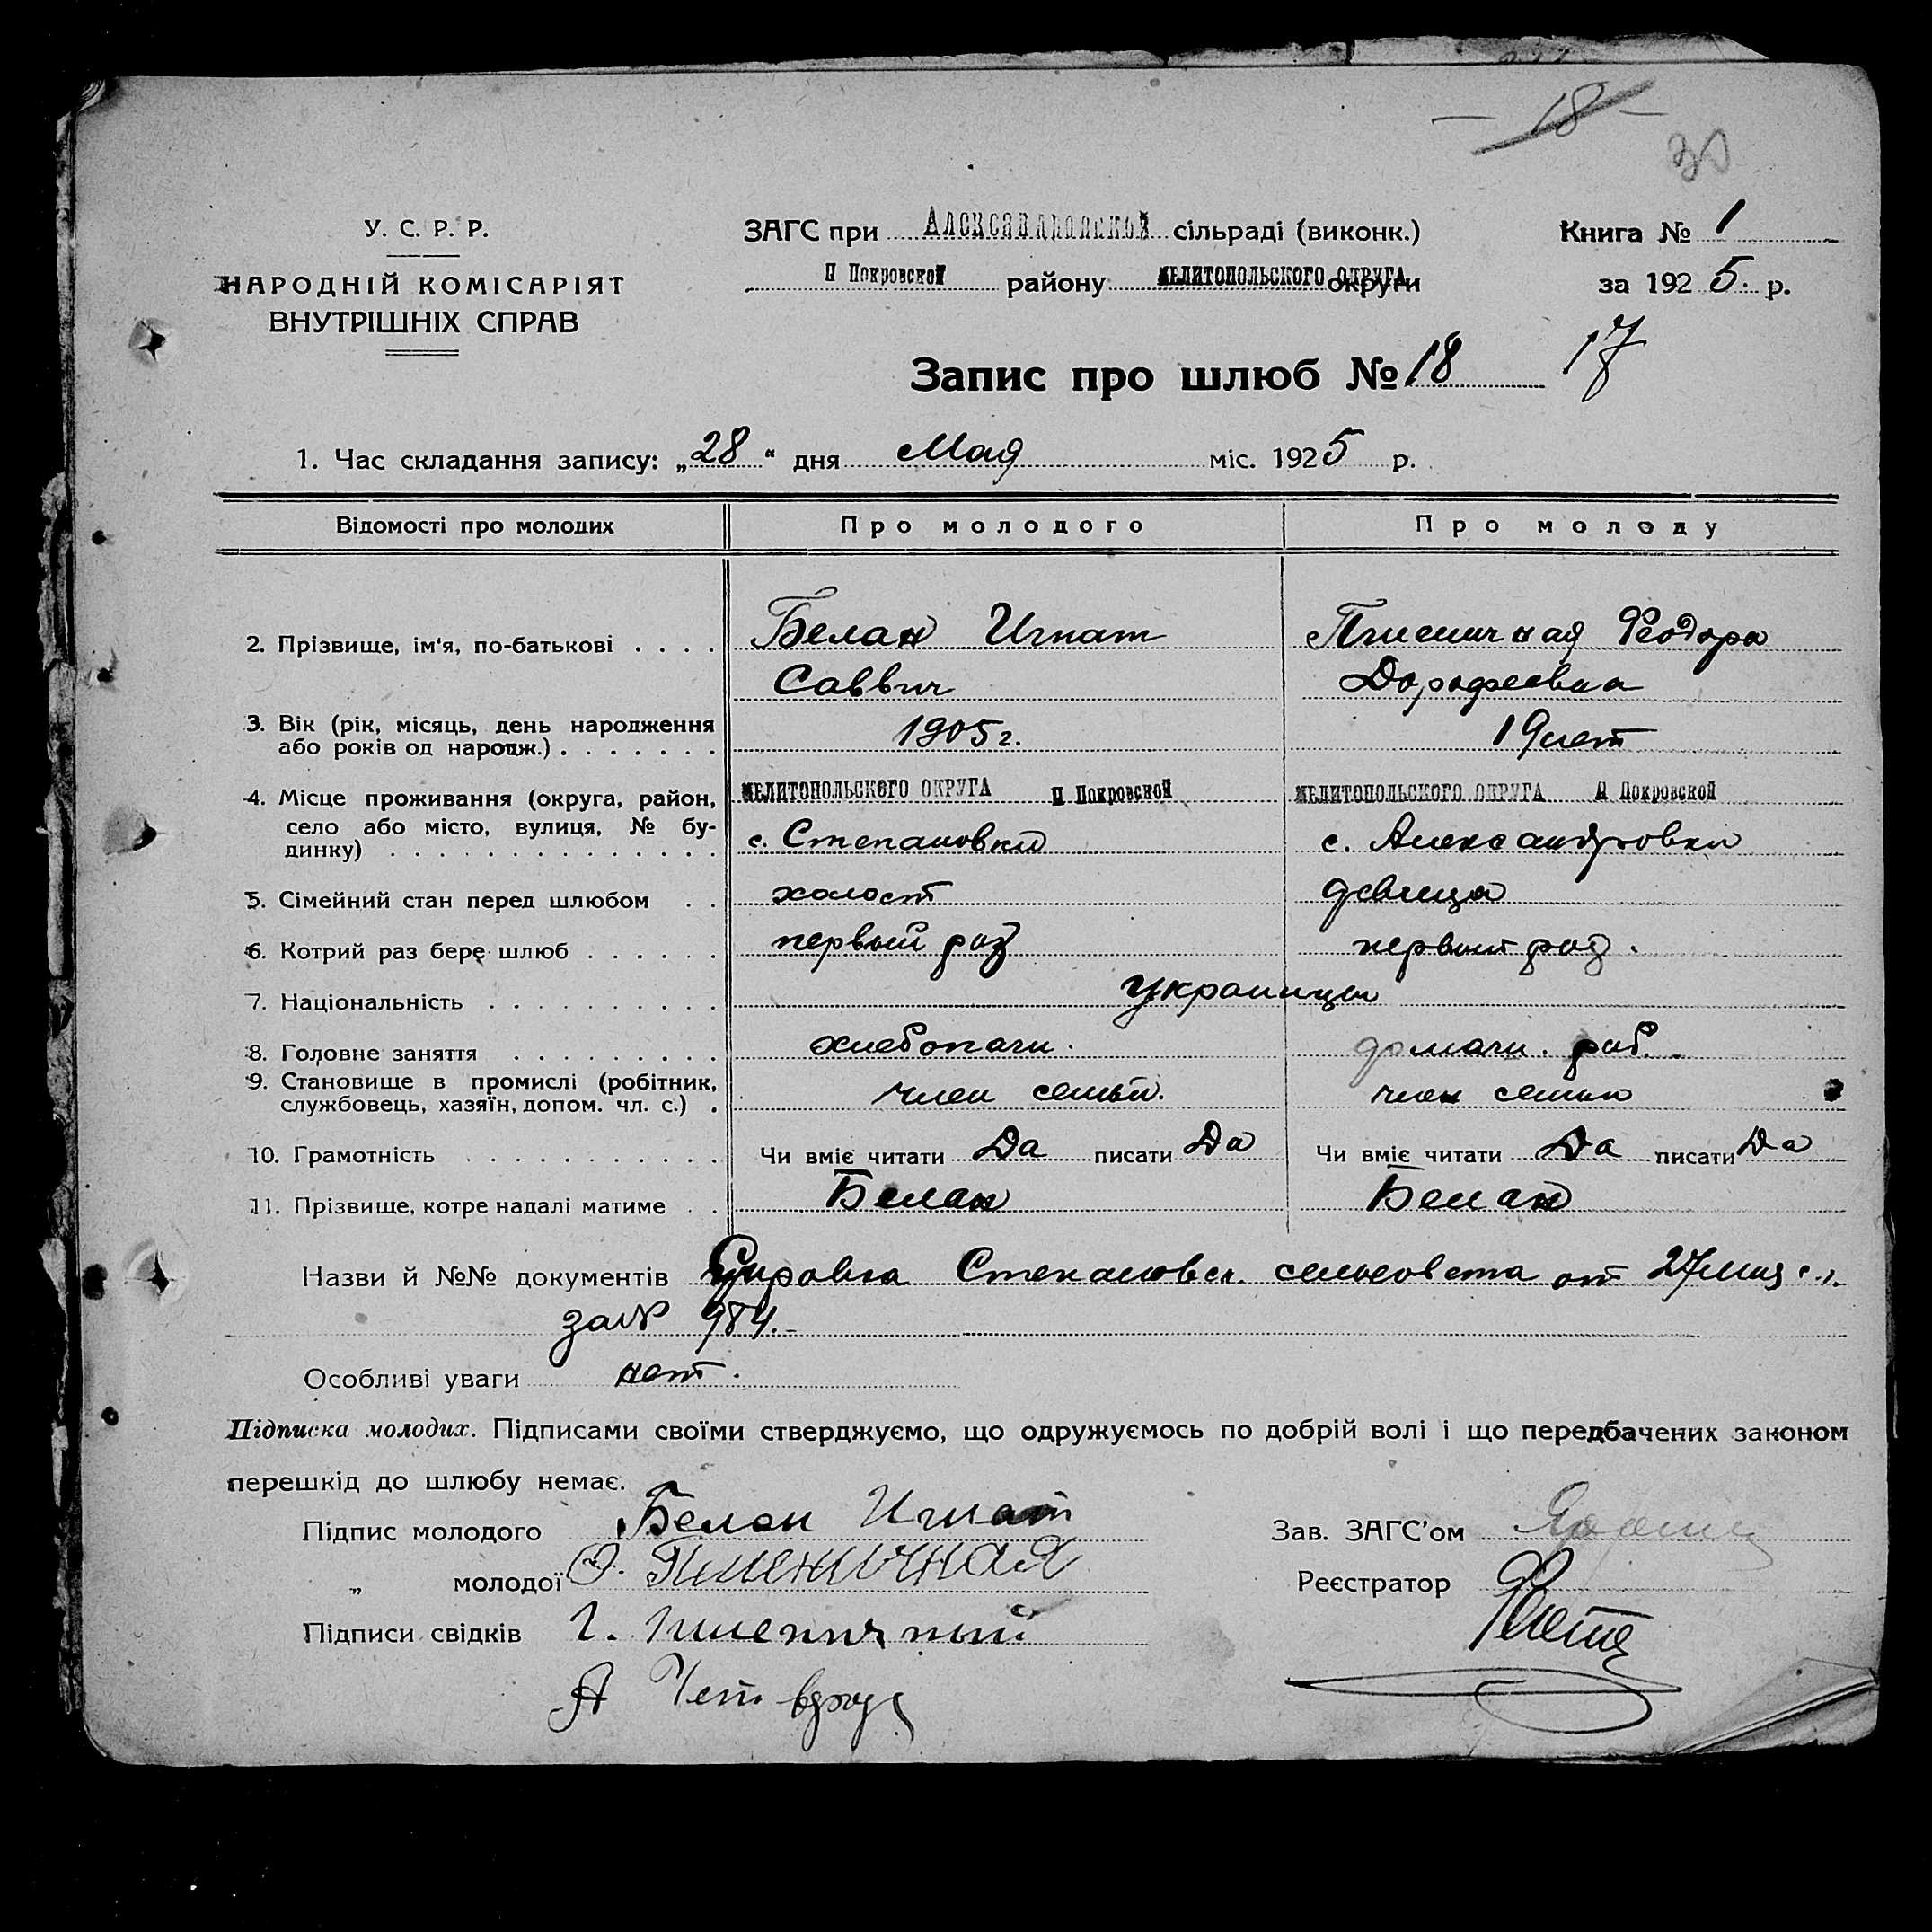 - 18 -
30
У. С. Р. Р.
НАРОДНІЙ КОМІСАРІЯТ
ВНУТРІШНІХ СПРАВ
ЗАГС при Александровской сільраді (виконк.)
П Покровской району МЕЛИТОПОЛЬСКОГО ОКРУГА округи
Книга № 1
за 1925. р.
Запис про шлюб № 18 17
1. Час складання запису: „28“ дня Мая міс. 1925 р.
Відомості про молодих Про молодого Про молоду
2. Прізвище, ім'я, по-батькові . . . . Белан Игнат Пшеничная Феодора
Саввич Дорофеевна
3. Вік (рік, місяць, день народження
або років од народж.) . . . . . . . 1905 г. 19 лет
4. Місце проживання (округа, район, МЕЛИТОПОЛЬСКОГО ОКРУГА П Покровской МЕЛИТОПОЛЬСКОГО ОКРУГА П Покровской
село або місто, вулиця, № бу-
динку) . . . . . . . . . . . . . . с. Степановки с. Александровки
5. Сімейний стан перед шлюбом . . холост девица
6. Котрий раз бере шлюб . . . . . . первый раз первый раз.
7. Національність . . . . . . . . . . Украинцы
8. Головне заняття . . . . . . . . . хлебопаш. домашн. раб.
9. Становище в промислі (робітник,
службовець, хазяїн, допом. чл. с.) . член семьи. член семьи
10. Грамотність . . . . . . . . . . . Чи вміє читати Да писати Да Чи вміє читати Да писати Да
11. Прізвище, котре надалі матиме . . Белан Белан
Назви й №№ документів Справка Степановск. сельсовета от 27 мая с.г.
за № 984.
Особливі уваги нет.
Підписка молодих. Підписами своїми стверджуємо, що одружуємось по добрій волі і що передбачених законом
перешкід до шлюбу немає.
Підпис молодого Белан Игнат
Зав. ЗАГС'ом
„ молодої Ф. Пшеничная
Реєстратор
Підписи свідків Г. Пшеничный
А